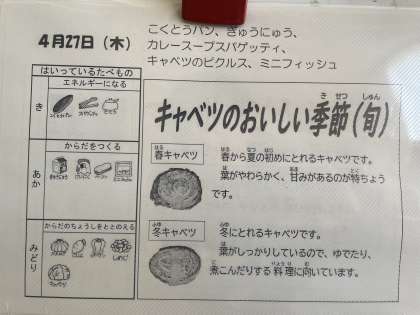 4月27日（木）
こくとうパン、ぎゅうにゅう、
カレースープスパゲッティ、
キャベツのピクルス、ミニフィッシュ
はいっているたべもの
エネルギーになる
き
からだをつくる
あか
からだのちょうしをととのえる
みどり
しめじ
キャベツ
キャベツのおいしい季節（旬）
きせつ しゅん
春キャベツ
はる
春から夏の初めにとれるキャベツです。
はる なつ はじ
葉がやわらかく、甘みがあるのが特ちょう
は あま とく
です。
冬キャベツ
ふゆ
冬にとれるキャベツです。
ふゆ
葉がしっかりしているので、ゆでたり、
は
煮こんだりする料理に向いています。
に りょうり む